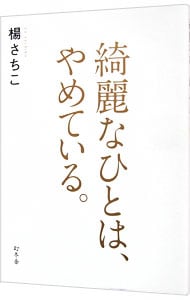 綺麗なひとは、
やめている。
楊さちこ
幻冬舎